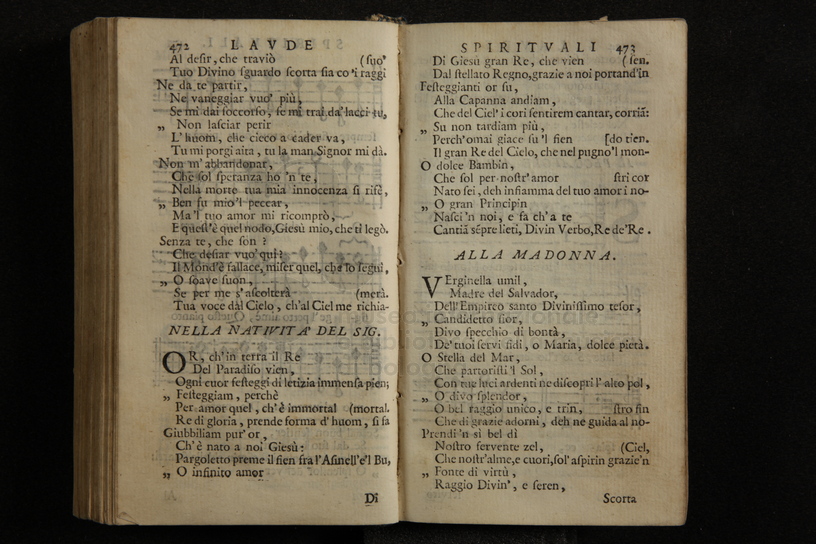 472 LAVDE
Al desir, che traviò (suo'
Tuo Divino sguardo scorta sia co'i raggi
Ne da te partir,
Ne vaneggiar vuo' più,
Se mi dai soccorso, se mi trai da' lacci tu,
„ Non lasciar perir
L'huom, che cieco a cader va,
Tu mi porgi aita, tu la man Signor mi dà.
Non m' abbandonar,
Che sol speranza ho 'n te,
Nella morte tua mia innocenza si rifè,
„ Ben fu mio'l peccar,
Ma'l tuo amor mi ricomprò,
E quest'è quel nodo, Giesù mio, che ti legò.
Senza te, che son ?
Che desiar vuo' qui ?
Il Mond'è fallace, miser quel, che lo seguì,
„ O soave suon,
Se per me s'ascolterà (merà.
Tua voce dàl Cielo, ch'al Ciel me richia-
NELLA NATIVITA' DEL SIG.
OR, ch'in terra il Re
Del Paradiso vien,
Ogni cuor festeggi di letizia immensa pien;
„ Festeggiam, perchè
Per amor quel, ch'è immortal (mortal.
Re di gloria, prende forma d'huom, si fa
Giubbiliam pur' or,
Ch'è nato a noi Giesù :
Pargoletto preme il fien fra l'Asinell'e'l Bu,
„ O infinito amor
Di
SPIRITVALI 473
Di Giesù gran Re, che vien (sen.
Dal stellato Regno, grazie a noi portand'in
Festeggianti or su,
Alla Capanna andiam,
Che del Ciel' i cori sentirem cantar, corriā:
„ Su non tardiam più,
Perch'omai giace su 'l fien [do tien.
Il gran Re del Cielo, che nel pugno'l mon-
O dolce Bambin,
Che sol per nostr' amor stri cor
Nato sei, deh infiamma del tuo amor i no-
„ O gran Principin
Nasci 'n noi, e fa ch' a te
Cantiā sēpre lieti, Divin Verbo, Re de' Re.
ALLA MADONNA.
VErginella umil,
Madre del Salvador,
Dell' Empireo santo Divinissimo tesor,
„ Candidetto fior,
Divo specchio di bontà,
De' tuoi servi fidi, o Maria, dolce pietà.
O Stella del Mar,
Che partoristi 'l Sol,
Con tue luci ardenti ne discopri l' alto pol,
„ O divo splendor,
O bel raggio unico, e trin, stro fin
Che di grazie adorni, deh ne guida al no-
Prendi 'n sì bel dì
Nostro fervente zel, (Ciel,
Che nostr'alme, e cuori, sol' aspirin grazie'n
„ Fonte di virtù,
Raggio Divin', e seren,
Scorta